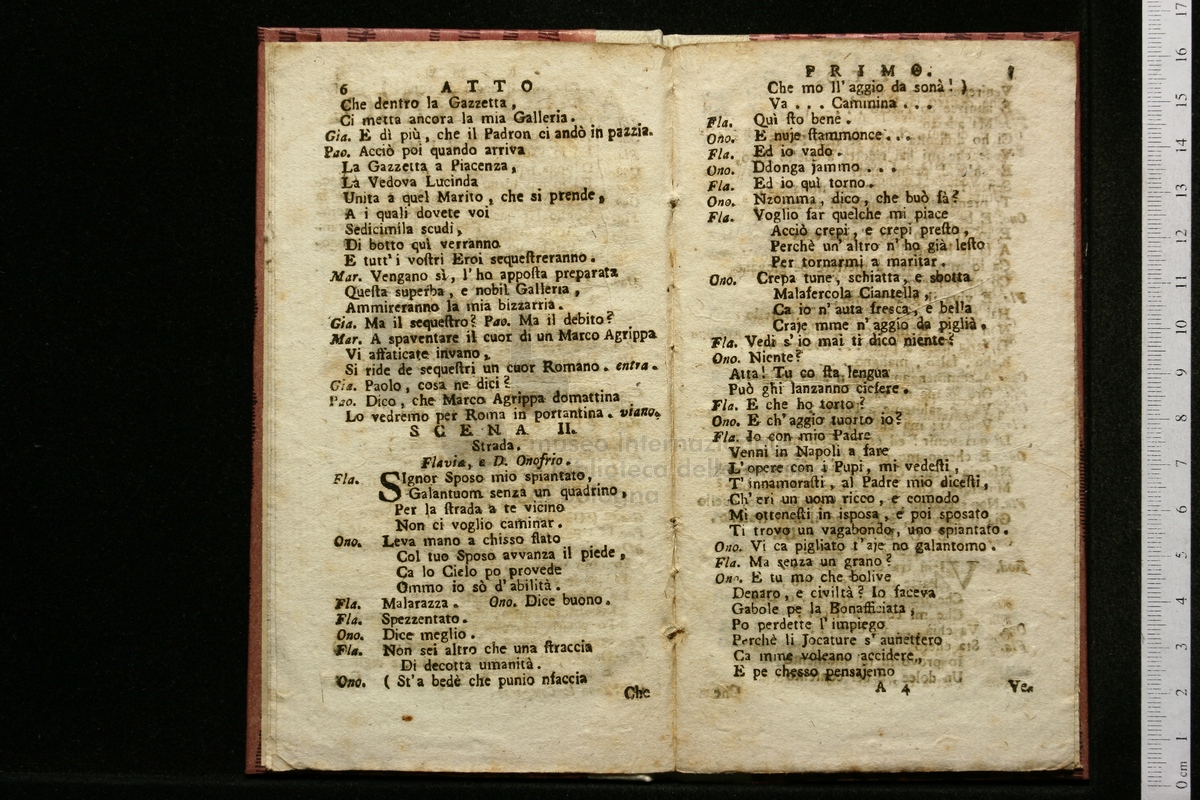 6 ATTO
Che dentro la Gazzetta,
Ci metta ancora la mia Galleria.
Gia. E dì più, che il Padron ci andò in pazzia.
Pao. Acciò poi quando arriva
La Gazzetta a Piacenza,
La Vedova Lucinda
Unita a quel Marito, che si prende,
A i quali dovete voi
Sedicimila scudi,
Di botto quì verranno
E tutt' i vostri Eroi sequestreranno.
Mar. Vengano sì, l'ho apposta preparata
Questa superba, e nobil Galleria,
Ammireranno la mia bizzarria.
Gia. Ma il sequestro? Pao. Ma il debito?
Mar. A spaventare il cuor di un Marco Agrippa
Vi affaticate invano,
Si ride de sequestri un cuor Romano. entra.
Gia. Paolo, cosa ne dici?
Pao. Dico, che Marco Agrippa domattina
Lo vedremo per Roma in portantina. viano.
SCENA II.
Strada.
Flavia, e D. Onofrio.
Fla. SIgnor Sposo mio spiantato,
Galantuom senza un quadrino,
Per la strada a te vicino
Non ci voglio caminar.
Ono. Leva mano a chisso stato
Col tuo Sposo avvanza il piede,
Ca lo Cielo po provede
Ommo io sò d'abilità.
Fla. Malarazza. Ono. Dice buono.
Fla. Spezzentato.
Ono. Dice meglio.
Fla. Non sei altro che una straccia
Di decotta umanità.
Ono. ( St'a bedè che punio nfaccia
Che
PRIMO. 7
Che mo ll'aggio da sonà! )
Va . . . Cammina . . .
Fla. Quì sto bene.
Ono. E nuje stammonce . . .
Fla. Ed io vado.
Ono. Ddonga jammo . . .
Fla. Ed io quì torno.
Ono. Nzomma, dico, che buò fà?
Fla. Voglio far quelche mi piace
Acciò crepi, e crepi presto,
Perchè un'altro n'ho già lesto
Per tornarmi a maritar.
Ono. Crepa tune, schiatta, e sbotta
Malafercola Ciantella,
Ca io n'auta fresca, e bella
Craje mme n'aggio da piglià.
Fla. Vedi s'io mai ti dico niente?
Ono. Niente?
Atta! Tu co sta lengua
Può ghi lanzanno ciefere.
Fla. E che ho torto?
Ono. E ch'aggio tuorto io?
Fla. Io con mio Padre
Venni in Napoli a fare
L'opere con i Pupi, mi vedesti,
T'innamorasti, al Padre mio dicesti,
Ch'eri un uom ricco, e comodo
Mi ottenesti in isposa, e poi sposato
Ti trovo un vagabondo, uno spiantato.
Ono. Vi ca pigliato t'aje no galantomo.
Fla. Ma senza un grano?
Ono. E tu mo che bolive
Denaro, e civiltà? Io faceva
Gabole pe la Bonafficiata,
Po perdette l'impiego
Perchè li Jocature s'aunettero
Ca mme voleano accidere,
E pe chesso pensajemo
A 4 Ve-